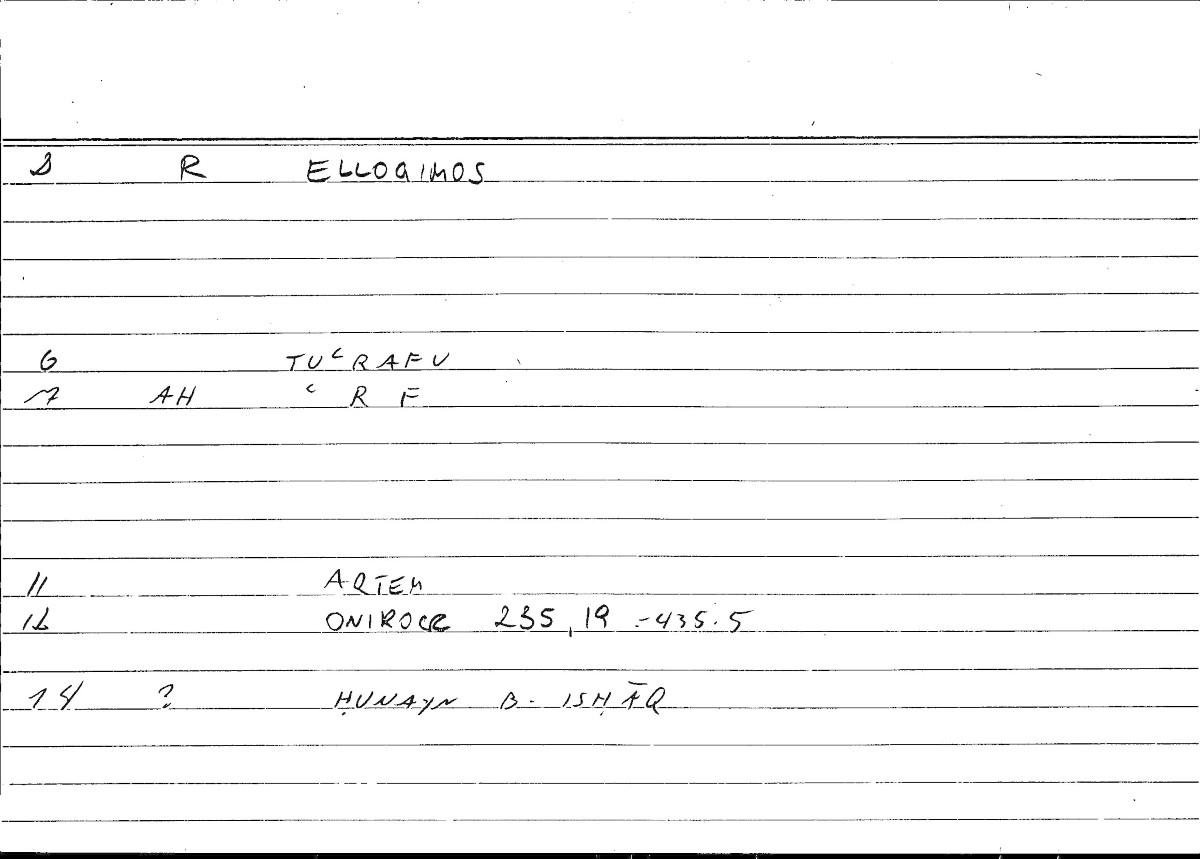 R ELLOGIMOS
6 TUʿRAFU
7 AH ʿ R F
11 ARTEM
12 ONIROCR 235,19 - 435.5
14 ? ḤUNAYN B. ISḤĀQ